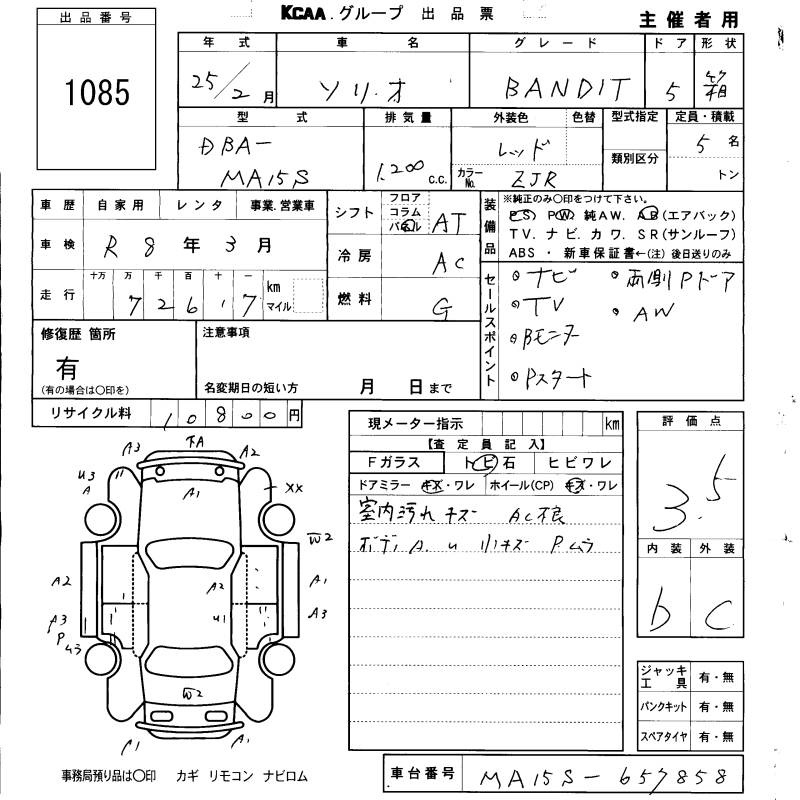 KCAA.グループ 出品票 主催者用
出品番号
1085
年式 車名 グレード ドア 形状
25/2月 ソリオ BANDIT 5 箱
型式 排気量 外装色 色替 型式指定 定員・積載
DBA- 5名
MA15S 1,200 c.c. レッド 類別区分
カラーNo. ZJR トン
車歴 自家用 レンタ 事業.営業車
車検 R8年3月
走行 十万 万 千 百 十 一
72617 km マイル
シフト フロア コラム パネル AT
冷房 AC
燃料 G
装備品
※純正のみ〇印をつけて下さい。
PS PW 純AW. AB(エアバック)
TV. ナビ. カワ. SR(サンルーフ)
ABS ・ 新車保証書←(注) 後日送りのみ
セールスポイント
ナビ 両側Pドア
TV AW
Bモニター
Pスタート
修復歴 箇所
有
(有の場合は〇印を)
注意事項
名変期日の短い方 月 日まで
リサイクル料 10800円
現メーター指示 km
【査定員記入】
Fガラス トビ石 ヒビワレ
ドアミラー キズ・ワレ ホイール(CP) キズ・ワレ
室内汚れ キズ AC不良
ボディA. u 小キズ P.ムラ
評価点
3.5
内装 外装
b C
ジャッキ工具 有・無
パンクキット 有・無
スペアタイヤ 有・無
A3 下A A2
U3 A A1 XX
W2
A2 A2 A1
A3 U1 A3
P
U3
W2
C1 A1
事務局預り品は〇印 カギ リモコン ナビロム
車台番号 MA15S-657858